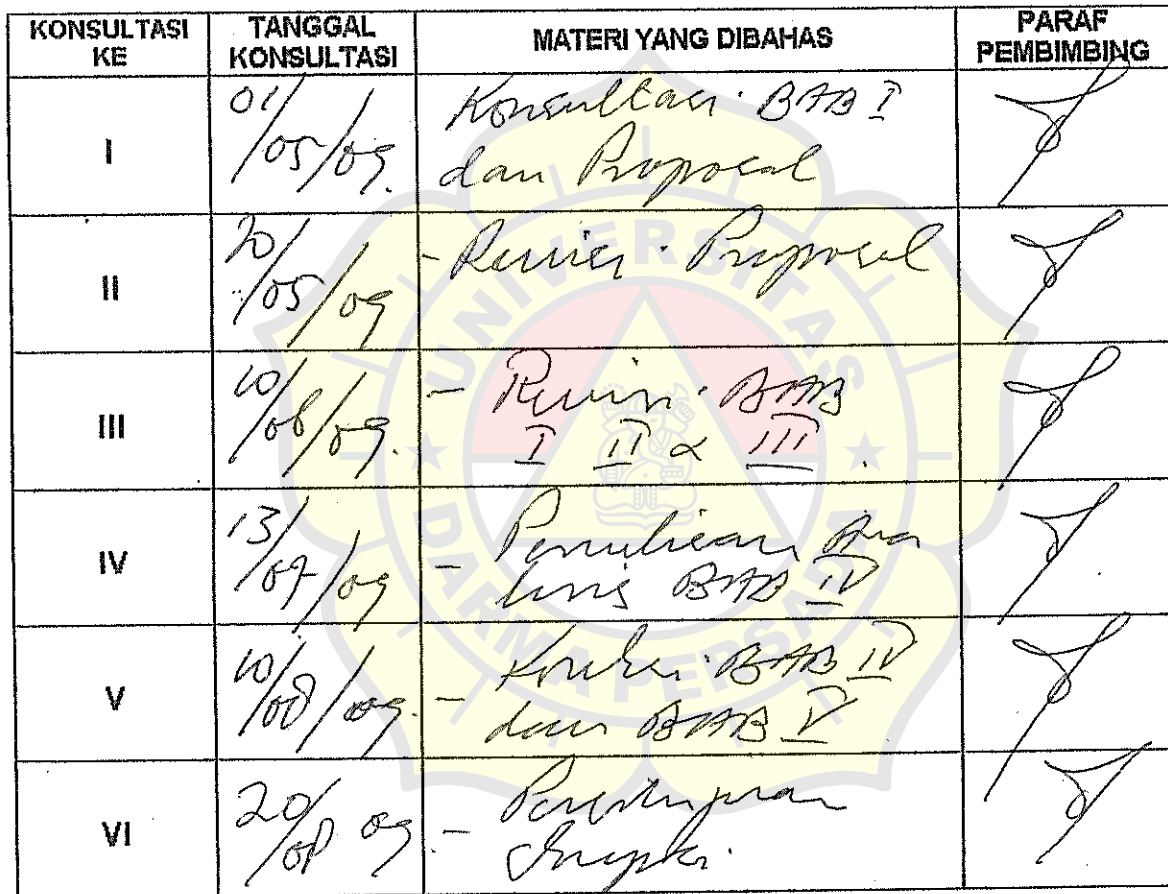 KONSULTASI KE
TANGGAL KONSULTASI
MATERI YANG DIBAHAS
PARAF PEMBIMBING
I
01/05/09.
Konsultasi BAB I
dan Proposal
II
20/05/09
- Revisi Proposal
III
10/06/09.
- Revisi BAB
I II & III.
IV
13/07/09
- Penulisan Ana
lisis BAB IV
V
10/08/09.
- Koreksi BAB IV
dan BAB V
VI
20/08 09
- Persetujuan
Skripsi.
UNIVERSITAS
DARMA PERSADA